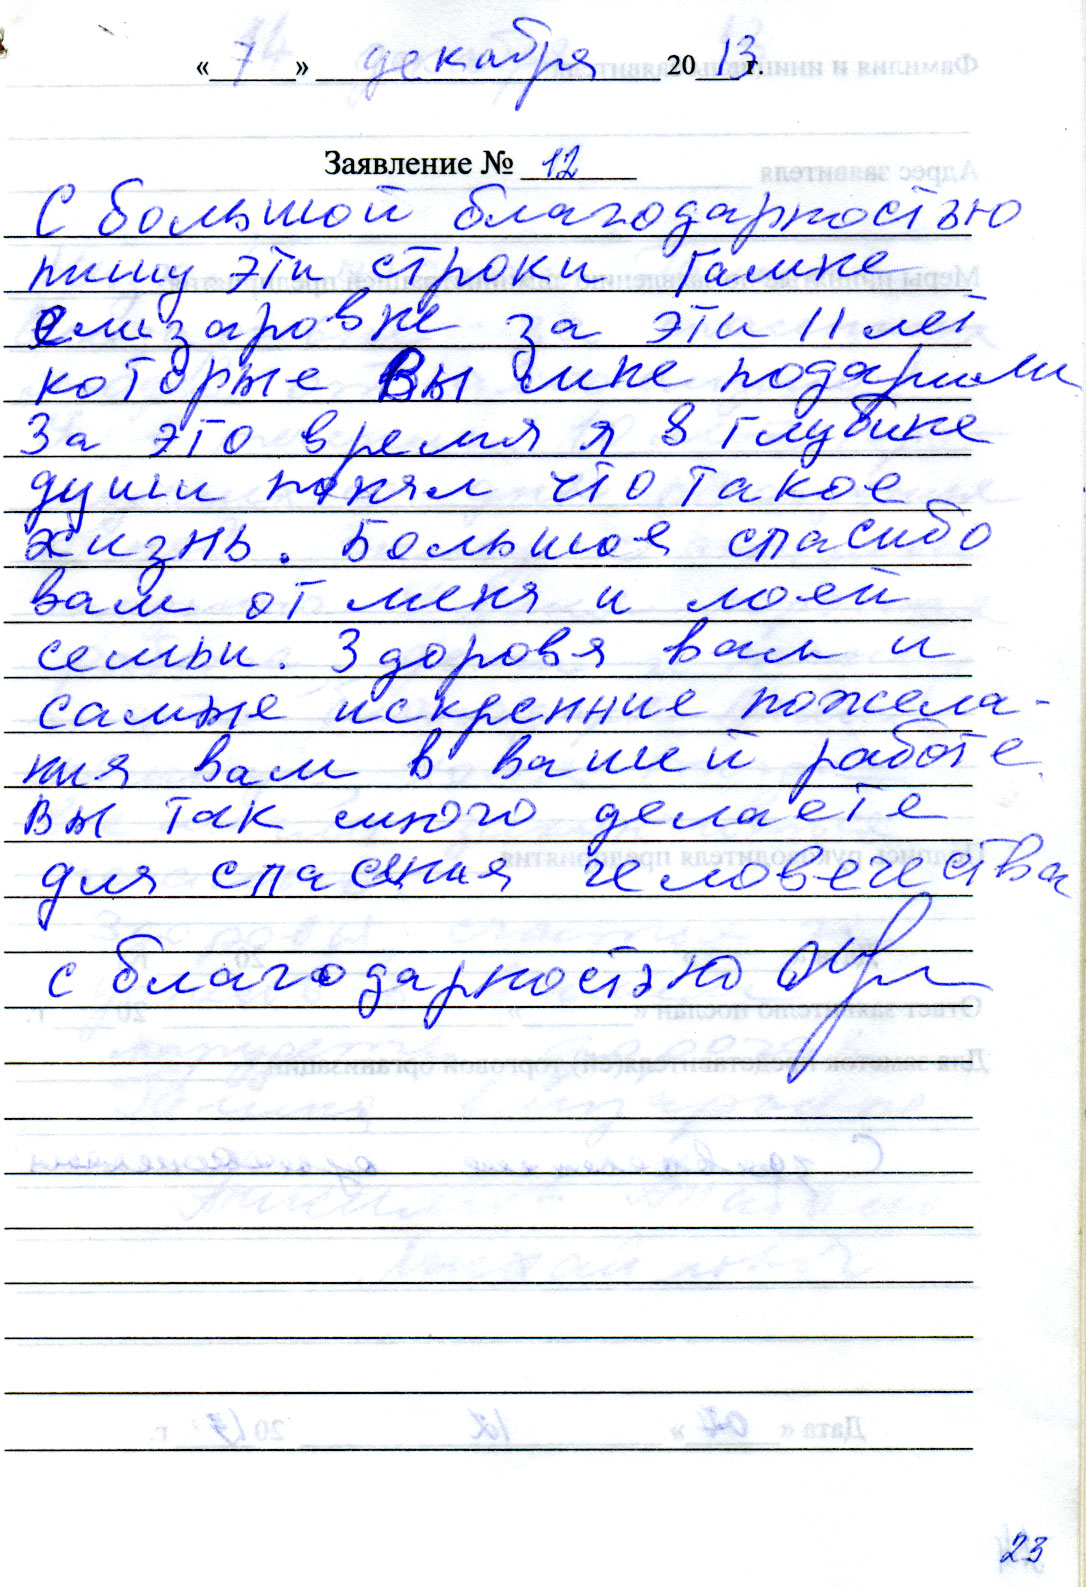 «7» декабря 2013 г.
Заявление № 12
С большой благодарностью
пишу эти строки Галине
елизаровне за эти 11 лет
которые Вы мне подарили
За это время я в глубине
души понял что такое
жизнь. Большое спасибо
вам от меня и моей
семьи. Здоровя вам и
самые искренние пожела-
ния вам в вашей работе
Вы так много делаете
для спасения человечества
с благодарностью
23